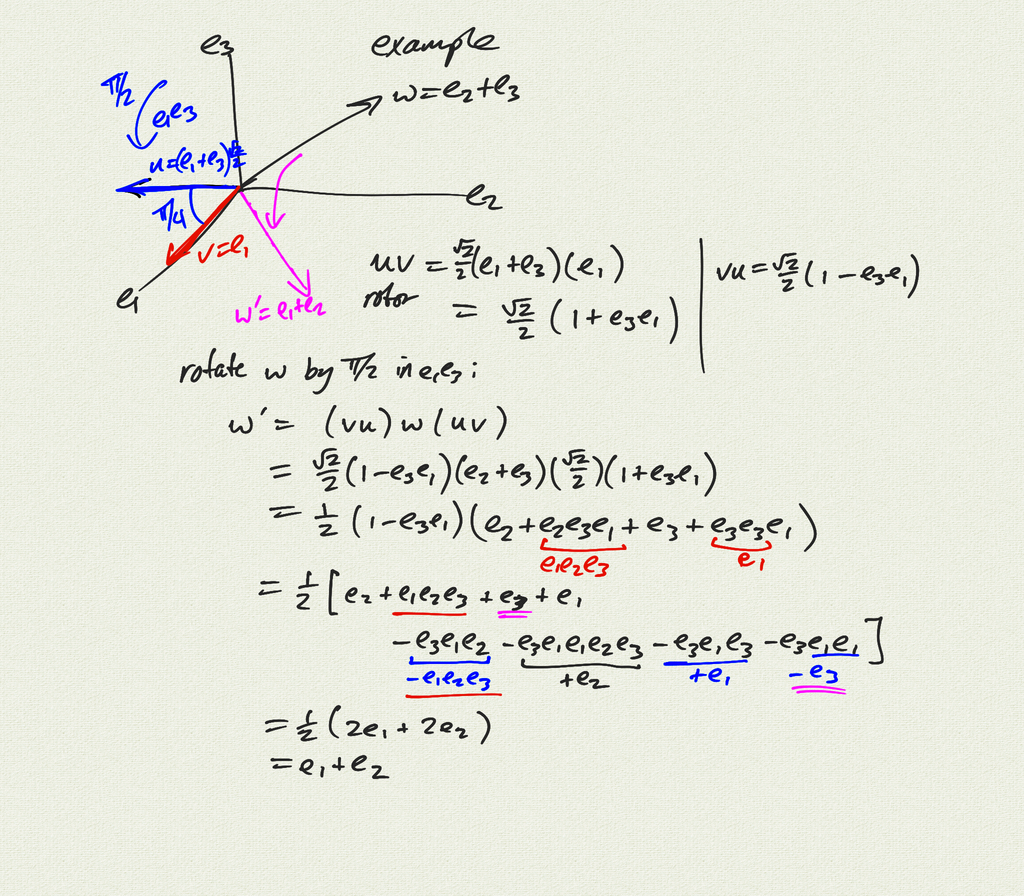 example
e₃
w = e₂ + e₃
π/2
e₁e₃
u = (e₁ + e₃) √2/2
e₂
π/4
v = e₁
e₁
w' = e₁ + e₂
uv = √2/2 (e₁ + e₃)(e₁)
rotor = √2/2 (1 + e₃e₁)
vu = √2/2 (1 − e₃e₁)
rotate w by π/2 in e₁e₃ :
w' = (vu) w (uv)
= √2/2 (1 − e₃e₁)(e₂ + e₃)(√2/2)(1 + e₃e₁)
= 1/2 (1 − e₃e₁)(e₂ + e₂e₃e₁ + e₃ + e₃e₃e₁)
e₁e₂e₃ e₁
= 1/2 [e₂ + e₁e₂e₃ + e₃ + e₁
− e₃e₁e₂ − e₃e₁e₁e₂e₃ − e₃e₁e₃ − e₃e₁e₁]
− e₁e₂e₃ + e₂ + e₁ − e₃
= 1/2 (2e₁ + 2e₂)
= e₁ + e₂